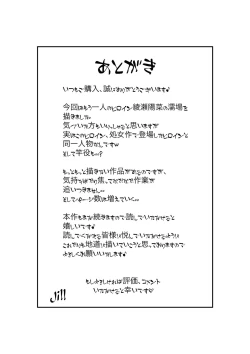 あとがき
いつもご購入、誠にありがとうございます♪
今回はもう一人のヒロイン綾瀬陽菜の濡場を
描きました
気づいた方もいらっしゃると思いますが
実はこのヒロイン、処女作で登場したヒロインと
同一人物だったりします
そして竿役も…?
もっともっと描きたい作品があるのですが、
気持ちばかり焦ってなかなか作業が
追いつきません…
そしてページ数は増えていく…
本作もまだ続きますので読んでいただけると
嬉しいです♪
読んでくださる皆様に悦んでいただけるように
これからも地道に描いていこうと思っておりますので
よろしくお願いいたします♪
もしよろしければ評価、コメント
いただけると幸いです
Jill